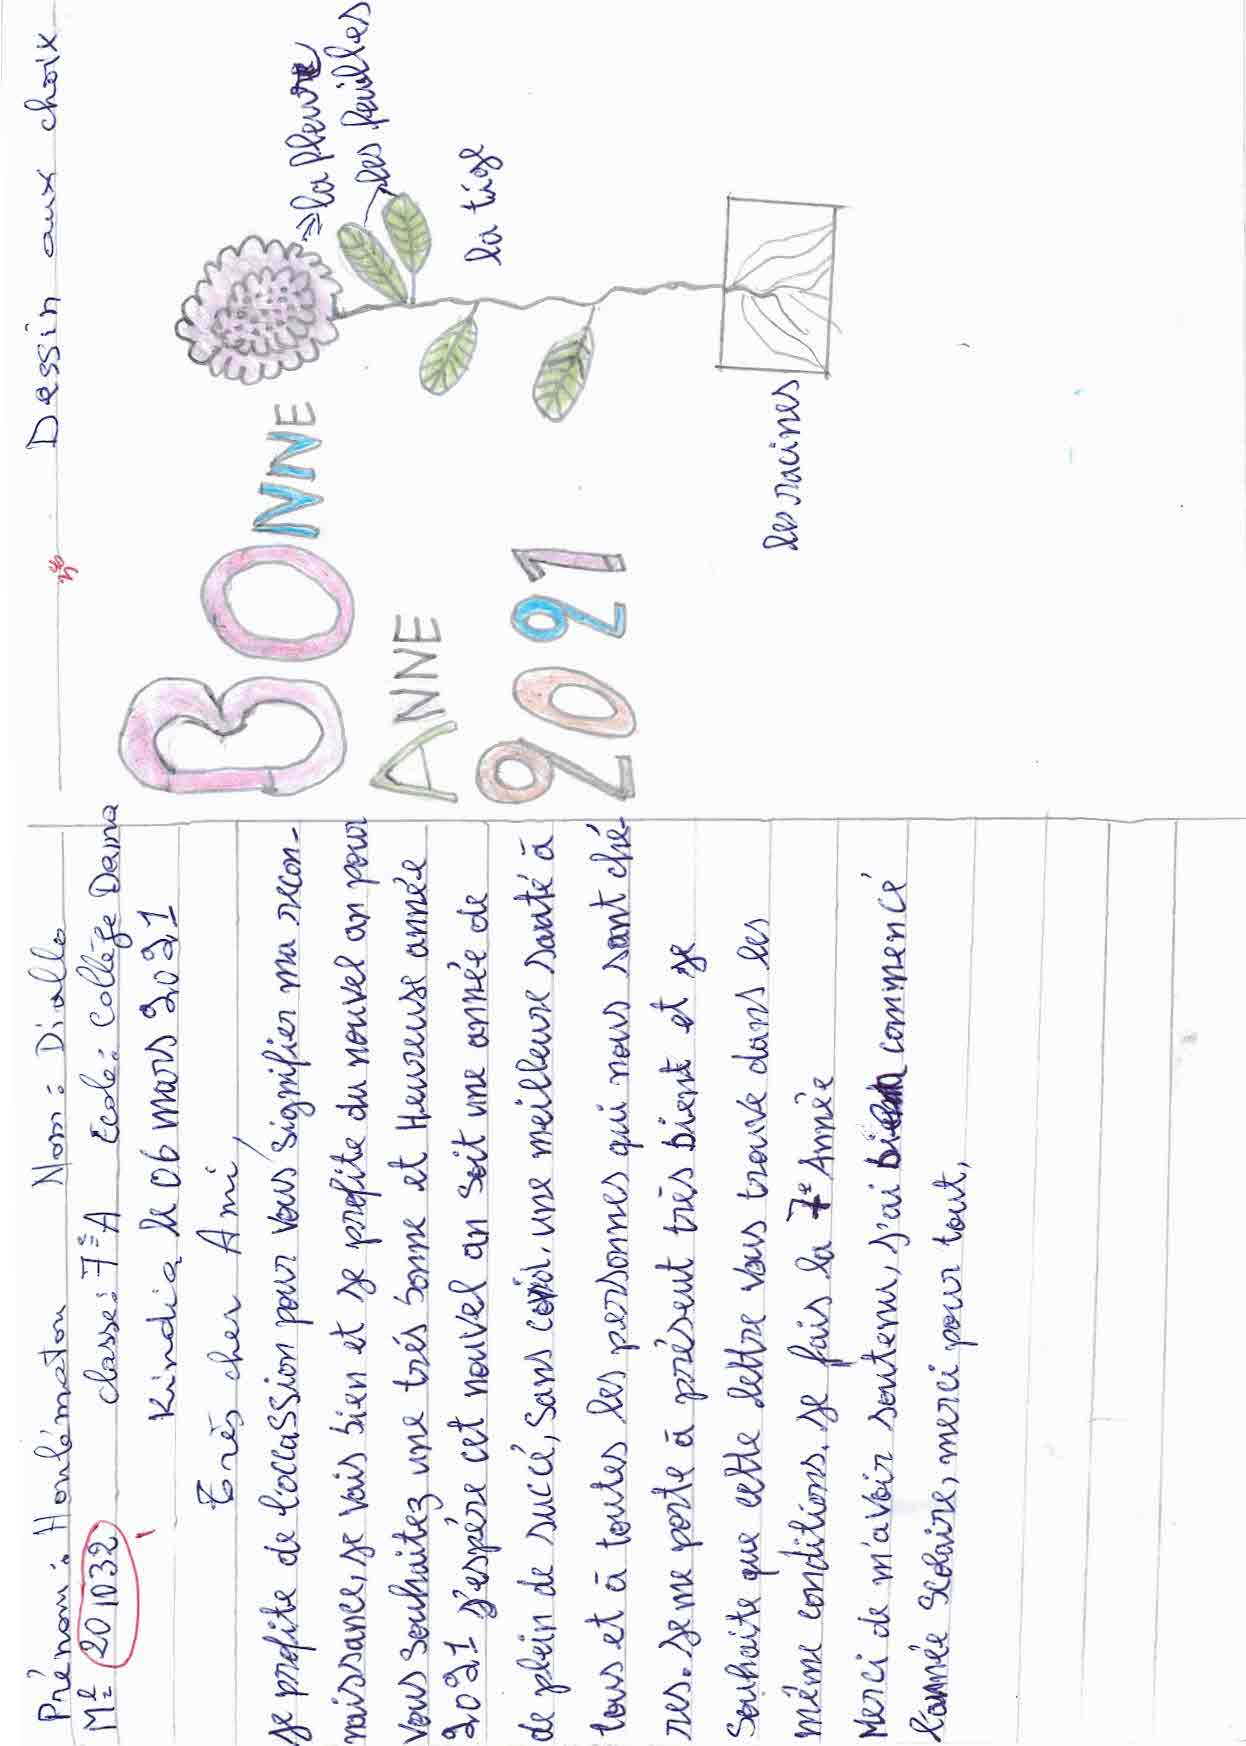 Prénom : Houlématou Nom : Diallo
Mle 201032 classe : 7ème A Ecole : Collège Dama
Kindia le 06 mars 2021
Très cher Ami,
Je profite de l'occassion pour vous signifier ma recon-
naissance, je vais bien et je profite du nouvel an pour
vous souhaitez une très bonne et Heureuse année
2021 j'espère cet nouvel an soit une année de
de plein de succé, sans , une meilleure santé à
tous et à toutes les personnes qui nous sont ché-
res. je me porte à présent très bient et je
Souhaite que cette lettre vous trouve dans les
même conditions. je fais la 7e Année
Merci de m'avoir soutenu, j'ai bien commencé
l'année scolaire, merci pour tout,
Dessin aux choix
BONNE
ANNE
2021
la fleure
les feuilles
la tige
les racines